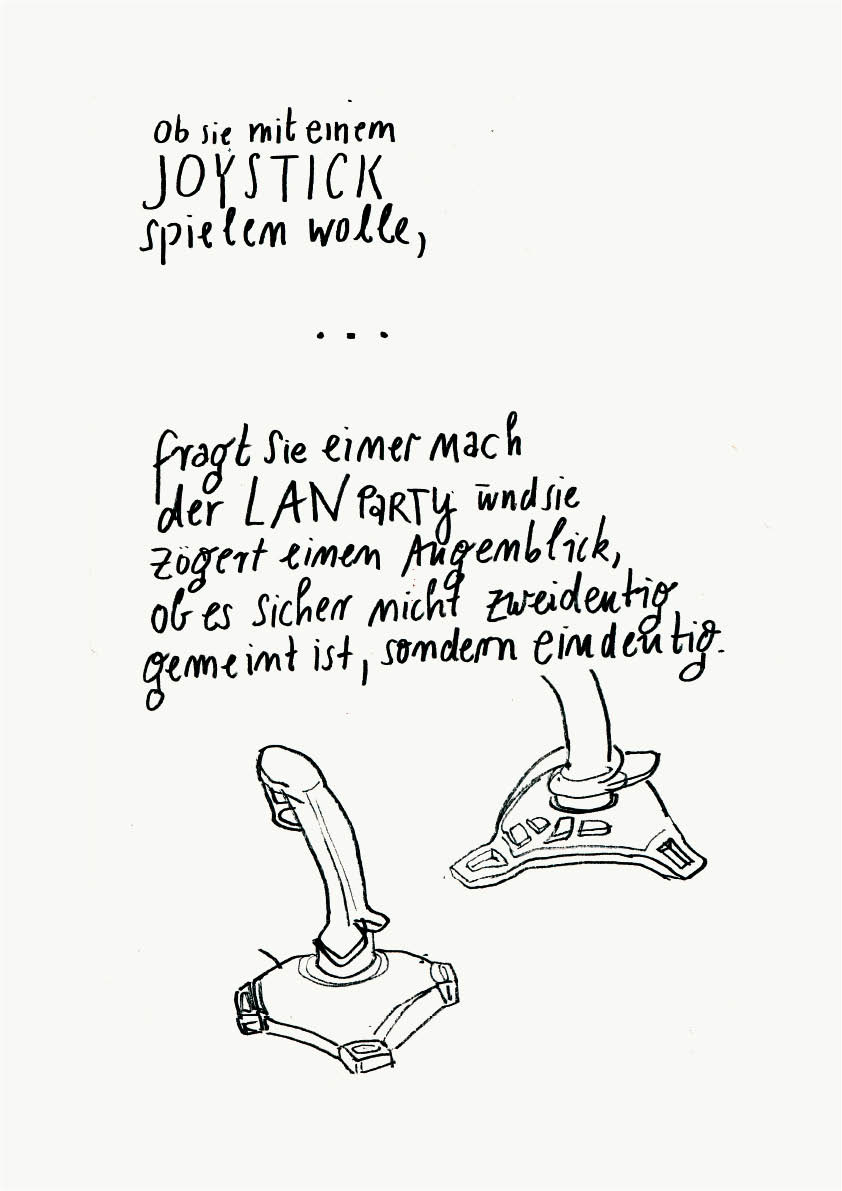 Ob sie mit einem
JOYSTICK
spielen wolle,
...
fragt sie einer nach
der LAN PaRTy und sie
zögert einen Augenblick,
ob es sicher nicht zweideutig
gemeint ist, sondern eindeutig.